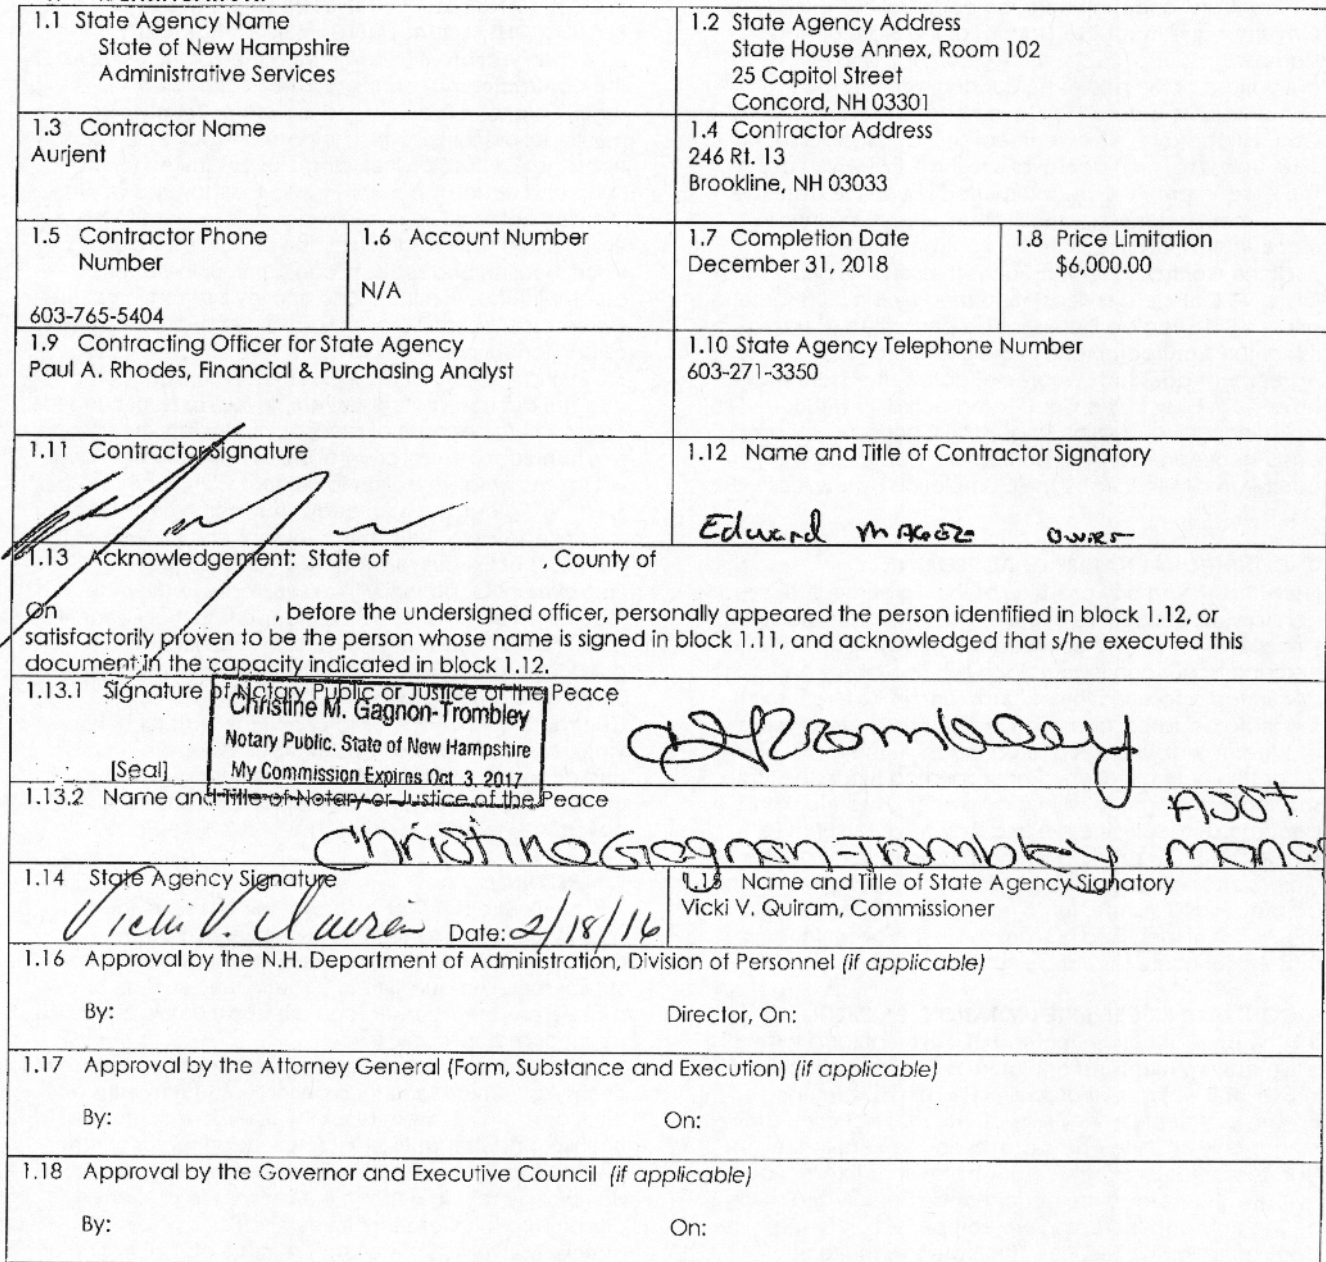 1.1 State Agency Name
State of New Hampshire
Administrative Services
1.2 State Agency Address
State House Annex, Room 102
25 Capitol Street
Concord, NH 03301
1.3 Contractor Name
Aurjent
1.4 Contractor Address
246 Rt. 13
Brookline, NH 03033
1.5 Contractor Phone
Number
603-765-5404
1.6 Account Number
N/A
1.7 Completion Date
December 31, 2018
1.8 Price Limitation
$6,000.00
1.9 Contracting Officer for State Agency
Paul A. Rhodes, Financial & Purchasing Analyst
1.10 State Agency Telephone Number
603-271-3350
1.11 Contractor Signature
1.12 Name and Title of Contractor Signatory
Edward
1.13 Acknowledgement: State of , County of
On , before the undersigned officer, personally appeared the person identified in block 1.12, or
satisfactorily proven to be the person whose name is signed in block 1.11, and acknowledged that s/he executed this
document in the capacity indicated in block 1.12.
1.13.1 Signature of Notary Public or Justice of the Peace
Christine M. Gagnon-Trombley
Notary Public, State of New Hampshire
My Commission Expires Oct. 3, 2017
[Seal]
1.13.2 Name and Title of Notary or Justice of the Peace
Asst
Christine Gagnon-Trombley Manag
1.14 State Agency Signature
Vicki V. Quiram Date: 2/18/16
1.15 Name and Title of State Agency Signatory
Vicki V. Quiram, Commissioner
1.16 Approval by the N.H. Department of Administration, Division of Personnel (if applicable)
By: Director, On:
1.17 Approval by the Attorney General (Form, Substance and Execution) (if applicable)
By: On:
1.18 Approval by the Governor and Executive Council (if applicable)
By: On: